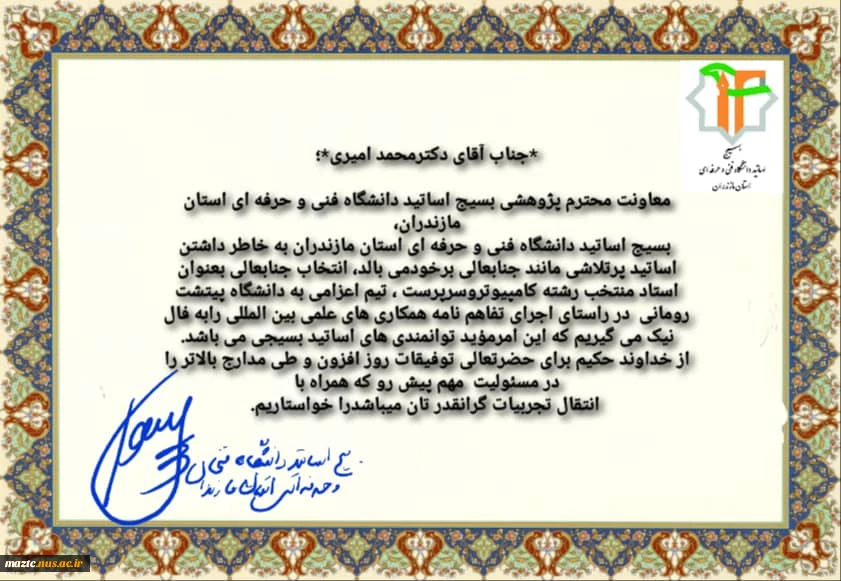 بسیج
اساتید دانشگاه فنی و حرفه ای
استان مازندران
*جناب آقای دکترمحمد امیری*؛
معاونت محترم پژوهشی بسیج اساتید دانشگاه فنی و حرفه ای استان
مازندران،
بسیج اساتید دانشگاه فنی و حرفه ای استان مازندران به خاطر داشتن
اساتید پرتلاشی مانند جنابعالی برخودمی بالد، انتخاب جنابعالی بعنوان
استاد منتخب رشته کامپیوتروسرپرست ، تیم اعزامی به دانشگاه پیتشت
رومانی در راستای اجرای تفاهم نامه همکاری های علمی بین المللی رابه فال
نیک می گیریم که این امرمؤید توانمندی های اساتید بسیجی می باشد.
از خداوند حکیم برای حضرتعالی توفیقات روز افزون و طی مدارج بالاتر را
در مسئولیت مهم پیش رو که همراه با
انتقال تجربیات گرانقدر تان میباشدرا خواستاریم.
بسیج اساتید دانشگاه فنی
و حرفه ای استان مازندران
maztc.nus.ac.ir